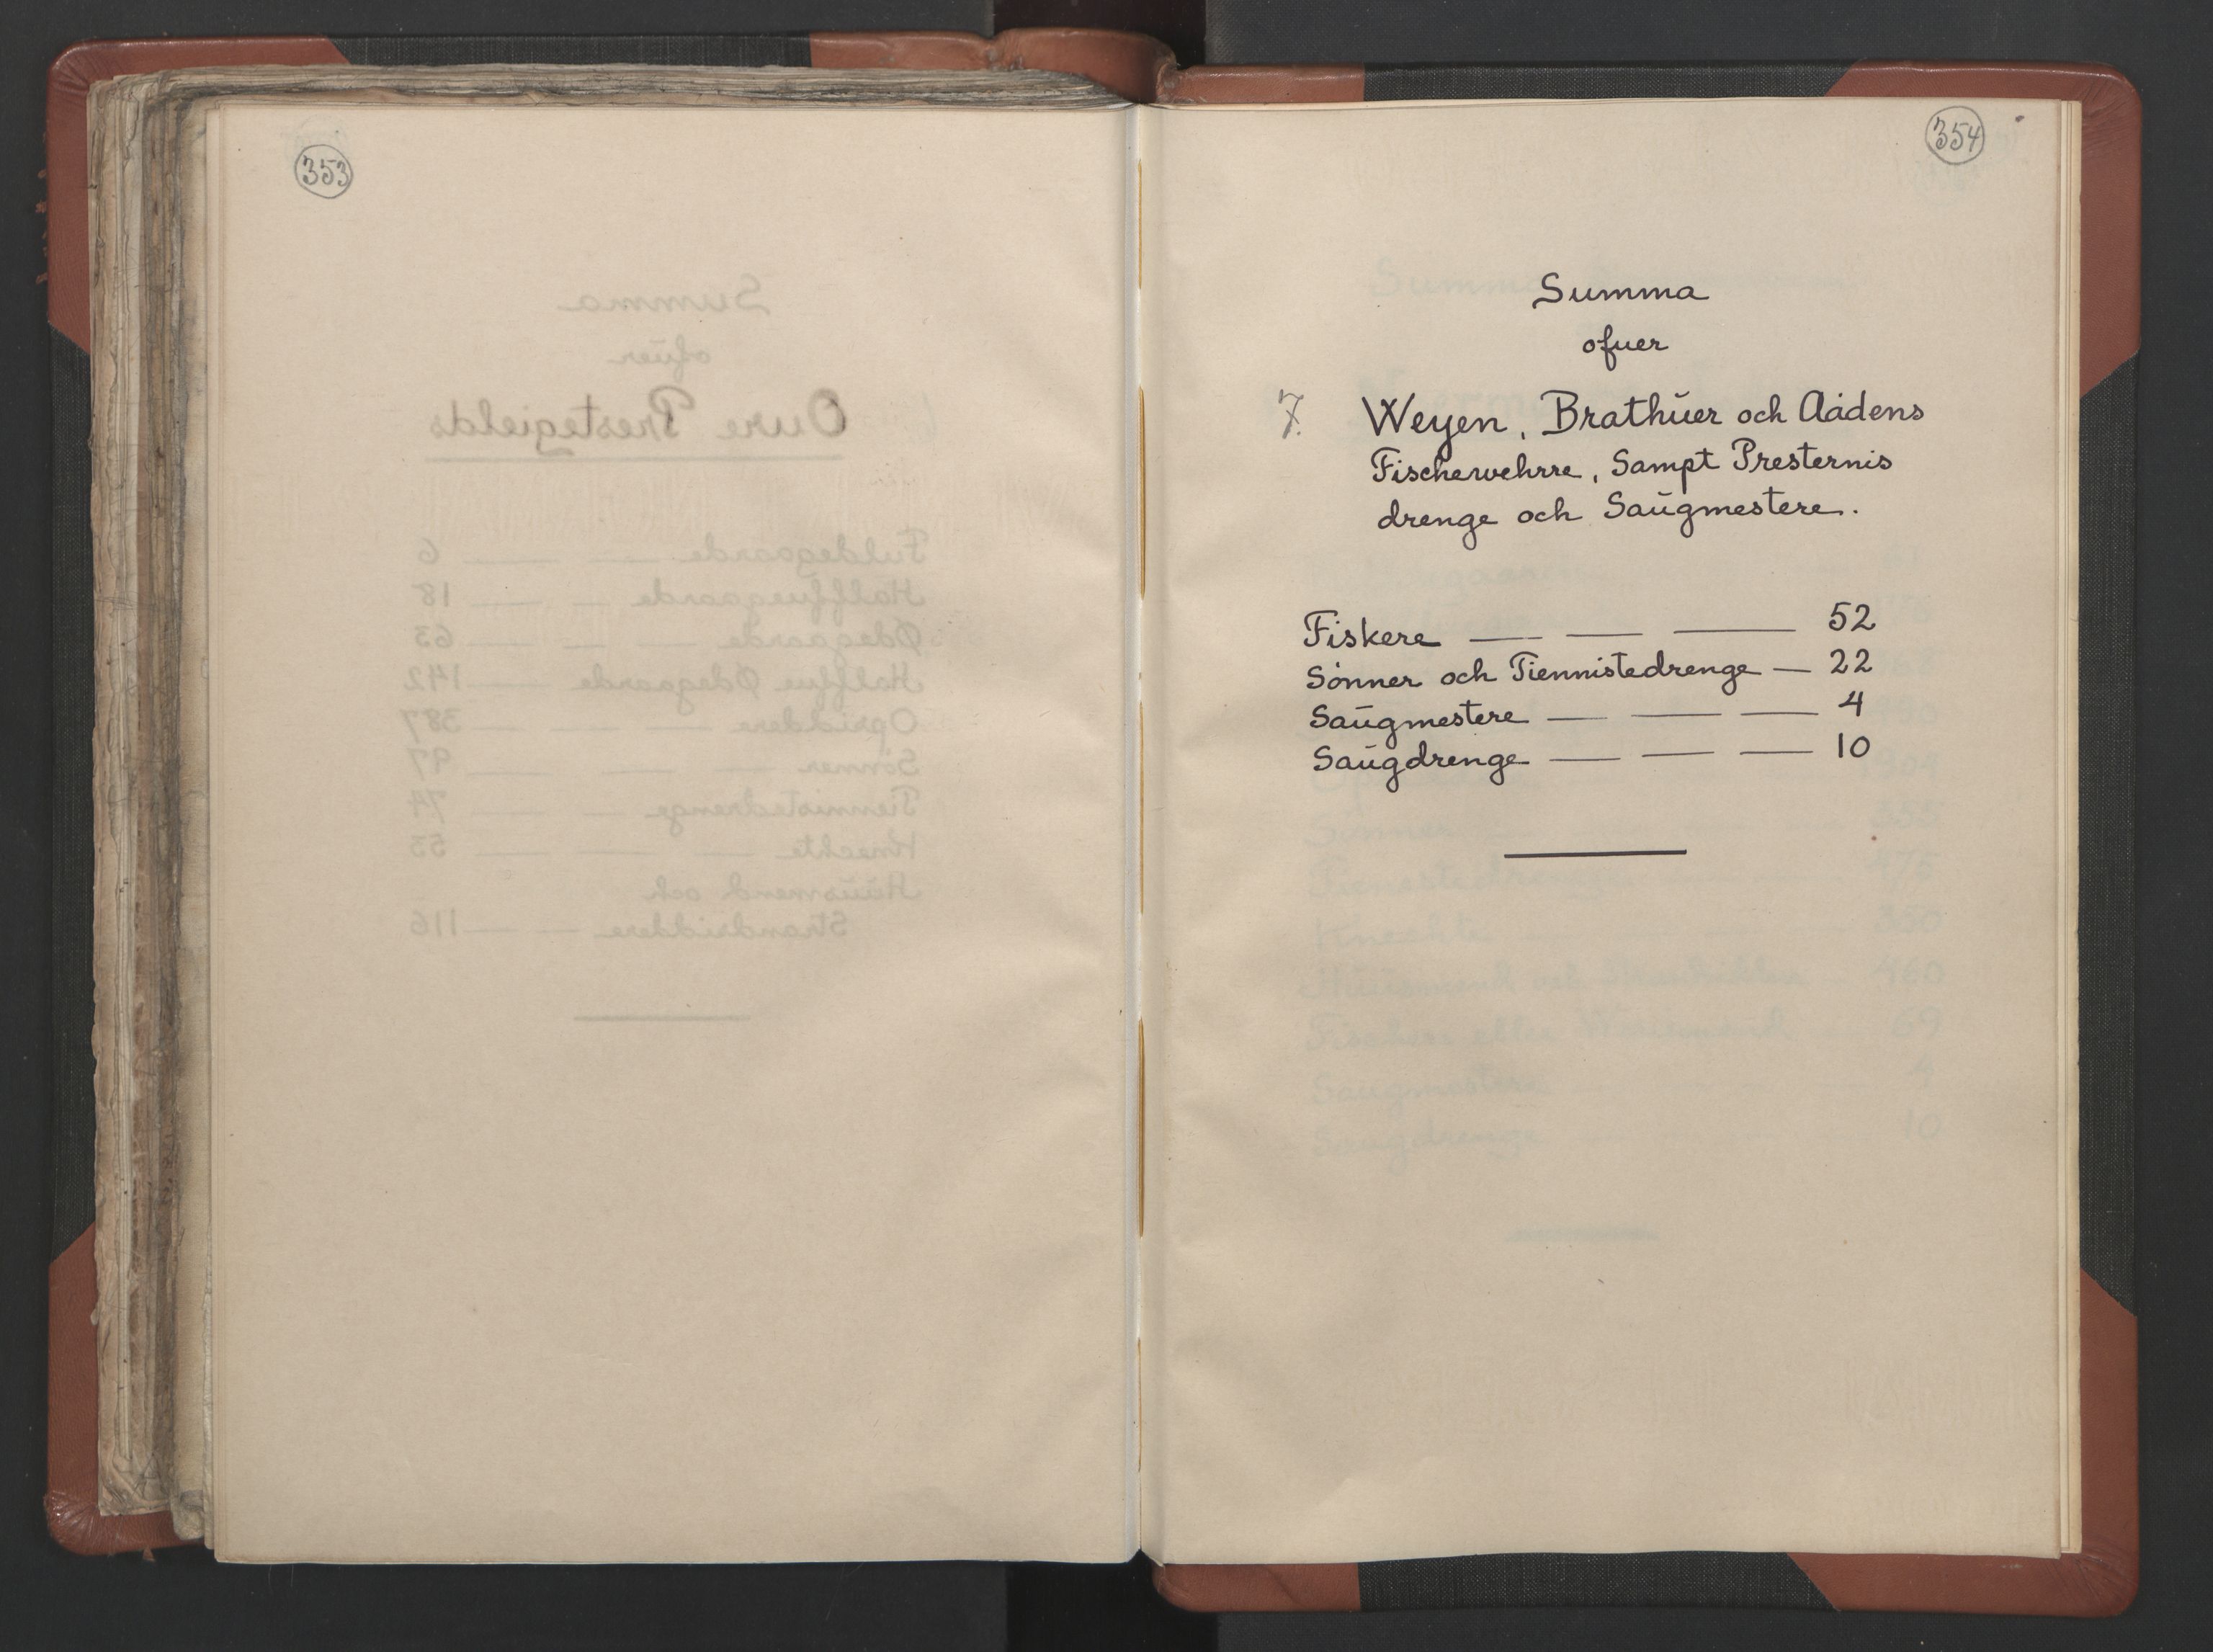 353
354
Summa
ofuer
7. Weyen, Brathŭer och Aadens
Fischerwehrre, Sampt Presternis
drenge och Saŭgmestere.
Fiskere — — — 52
Sönner och Tiennistedrenge — 22
Saŭgmestere — — — 4
Saŭgdrenge — — — 10